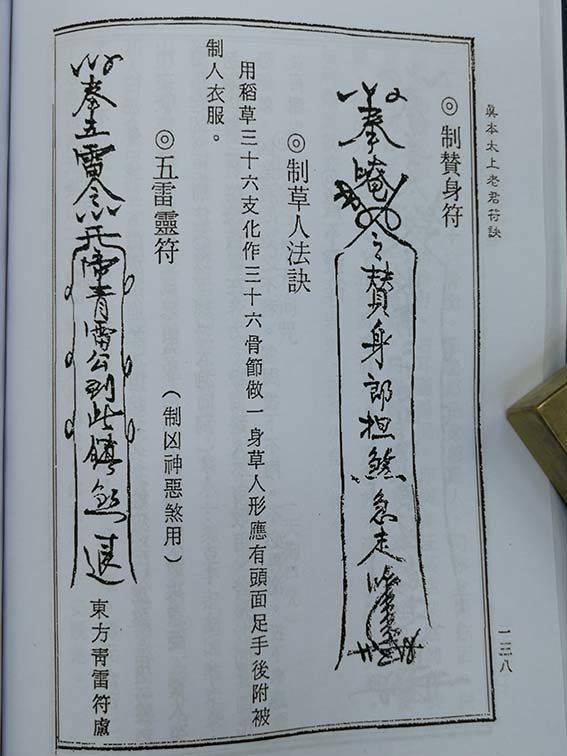 真本太上老君符訣
一三八
◎制贊身符
奉唵令贊身郎担煞急走
◎制草人法訣
用稻草三十六支化作三十六骨節做一身草人形應有頭面足手後附被
制人衣服。
◎五雷靈符
(制凶神惡煞用)
奉五雷令
青雷公到此鎮煞退
東方靑雷符處